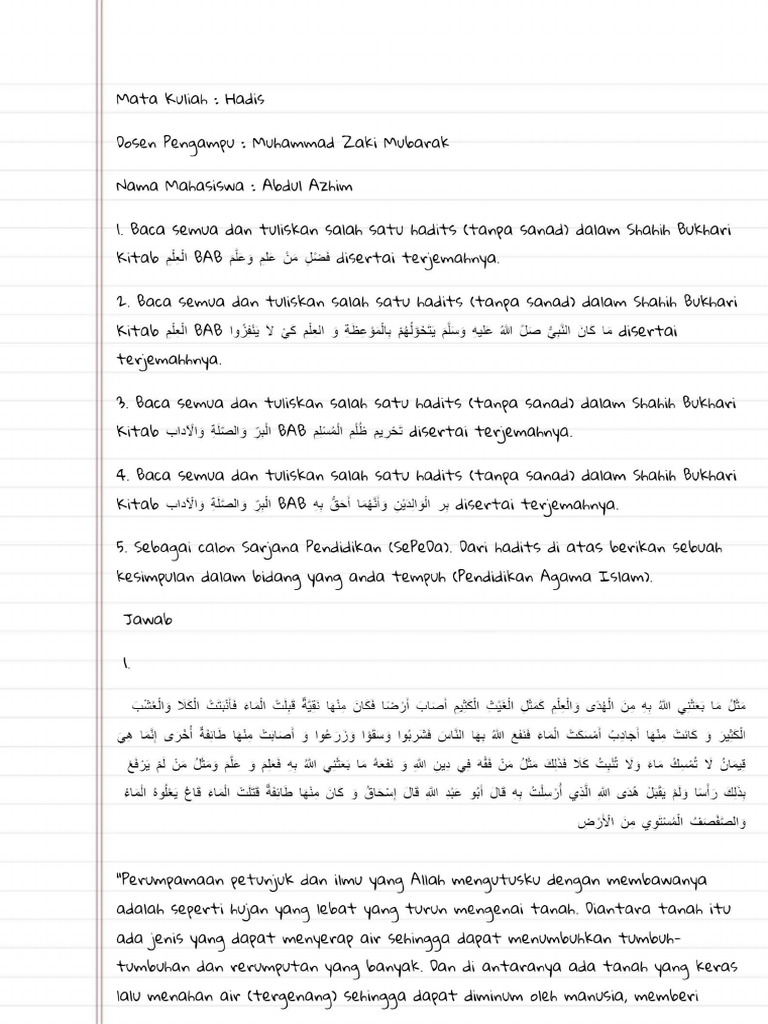 Mata Kuliah : Hadis
Dosen Pengampu : Muhammad Zaki Mubarak
Nama Mahasiswa : Abdul Azhim
1. Baca semua dan tuliskan salah satu hadits (tanpa sanad) dalam Shahih Bukhari
Kitab الْعِلْمِ BAB فَضْلِ مَنْ عَلِمَ وَعَلَّمَ disertai terjemahnya.
2. Baca semua dan tuliskan salah satu hadits (tanpa sanad) dalam Shahih Bukhari
Kitab الْعِلْمِ BAB مَا كَانَ النَّبِيُّ صَلَّ اللهُ عَلَيهِ وَسَلَّمَ يَتَخَوَّلُهُمْ بِالْمَوْعِظَةِ وَ العِلْمِ كَيْ لَا يَنْفِرُوا disertai
terjemahhnya.
3. Baca semua dan tuliskan salah satu hadits (tanpa sanad) dalam Shahih Bukhari
Kitab الْبِرّ وَالصّلَةِ وَالْاَداب BAB تَحْرِيمِ ظُلْمِ الْمُسْلِمِ disertai terjemahnya.
4. Baca semua dan tuliskan salah satu hadits (tanpa sanad) dalam Shahih Bukhari
Kitab الْبِرّ وَالصّلَةِ وَالْاَداب BAB بِر الْوَالِدَيْنِ وَأَنَّهُمَا اَحَقُّ بِهِ disertai terjemahnya.
5. Sebagai calon Sarjana Pendidikan (SePeDa). Dari hadits di atas berikan sebuah
kesimpulan dalam bidang yang anda tempuh (Pendidikan Agama Islam).
Jawab
1.
مَثَلُ مَا بَعَثَنِي اللهُ بِهِ مِنَ الْهُدَى وَالْعِلْمِ كَمَثَلِ الْغَيْثِ الْكَثِيمِ أَصَابَ أَرْضًا فَكَانَ مِنْهَا نَقِيَّةٌ قَبِلَتْ الْمَاءَ فَأَنْبَتَتْ الْكَلَأَ وَالْعُشْبَ
الْكَثِيرَ وَ كَانَتْ مِنْهَا أَجَادِبُ أَمْسَكَتْ الْمَاءَ فَنَفَعَ اللهُ بِهَا النَّاسَ فَشَرِبُوا وَسَقَوْا وَزَرَعُوا وَ أَصَابَتْ مِنْهَا طَائِفَةٌ أُخْرَى إِنَّمَا هِيَ
قِيمَانٌ لَا تُمْسِكُ مَاءً وَلَا تُنْبِتُ كَلًا فَذَلِكَ مَثَلُ مَنْ فَقُهَ فِي دِينِ اللهِ وَ نَفَعَهُ مَا بَعَثَنِي اللهُ بِهِ فَعَلِمَ وَ عَلَّمَ وَمَثَلُ مَنْ لَمْ يَرْفَعْ
بِذَلِكَ رَأْسًا وَلَمْ يَقْبَلْ هُدَى اللهِ الَّذِي أُرْسِلْتُ بِهِ قَالَ أَبُو عَبْدِ اللهِ قَالَ إِسْحَاقُ وَ كَانَ مِنْهَا طَائِفَةٌ قَتَلَتْ الْمَاءَ قَاعٌ يَعْلُوهُ الْمَاءُ
وَالصَّفْصَفُ الْمُسْتَوِي مِنَ الْأَرْضِ
"Perumpamaan petunjuk dan ilmu yang Allah mengutusku dengan membawanya
adalah seperti hujan yang lebat yang turun mengenai tanah. Diantara tanah itu
ada jenis yang dapat menyerap air sehingga dapat menumbuhkan tumbuh-
tumbuhan dan rerumputan yang banyak. Dan di antaranya ada tanah yang keras
lalu menahan air (tergenang) sehingga dapat diminum oleh manusia, memberi